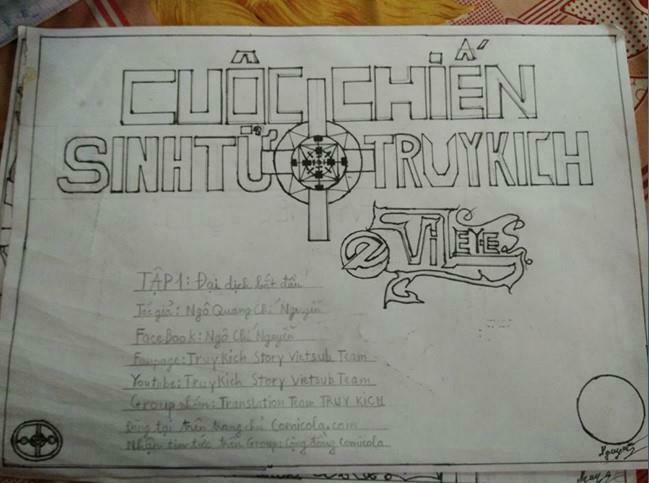 CUỘC CHIẾN
SINH TỬ TRUY KÍCH
EVIL EYES
TẬP 1: Đại dịch bắt đầu
Tác giả: Ngô Quang Chí Nguyễn
FaceBook: Ngô Chí Nguyễn
Fanpage: Truy Kích Story Vietsub Team
Youtube: Truy Kích Story Vietsub Team
Group nhóm: Translation Team TRUY KÍCH
Đăng tại trên trang chủ Comicola.com
Nhận tin tức trên Group: Cộng đồng Comicola
Nguyễn